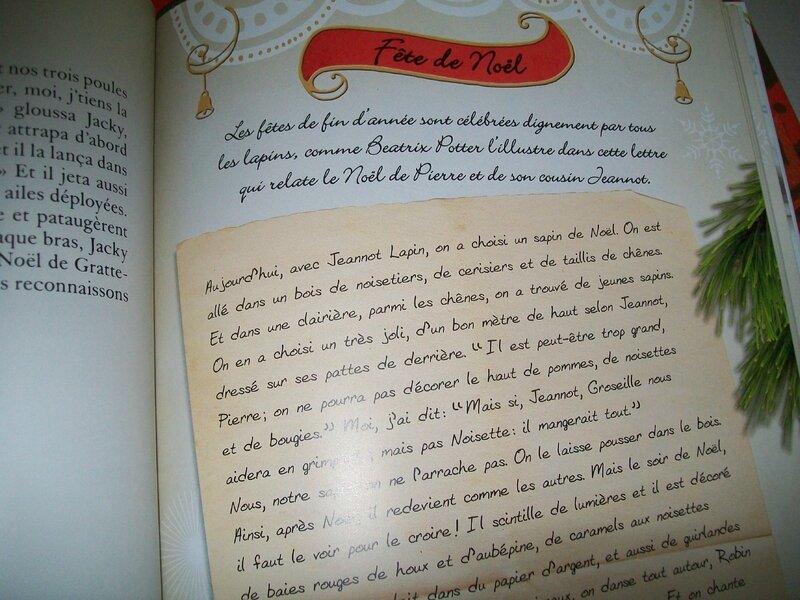 nos trois poules
er, moi, j'tiens la
gloussa Jacky,
attrapa d'abord
et il la lança dans
» Et il jeta aussi
ailes déployées.
e et pataugèrent
aque bras, Jacky
Noël de Gratte-
s reconnaissons
Fête de Noël
Les fêtes de fin d'année sont célébrées dignement par tous
les lapins, comme Beatrix Potter l'illustre dans cette lettre
qui relate le Noël de Pierre et de son cousin Jeannot.
Aujourd'hui, avec Jeannot Lapin, on a choisi un sapin de Noël. On est
allé dans un bois de noisetiers, de cerisiers et de taillis de chênes.
Et dans une clairière, parmi les chênes, on a trouvé de jeunes sapins.
On en a choisi un très joli, d'un bon mètre de haut selon Jeannot,
dressé sur ses pattes de derrière. "Il est peut-être trop grand,
Pierre; on ne pourra pas décorer le haut de pommes, de noisettes
et de bougies." Moi, j'ai dit: "Mais si, Jeannot, Groseille nous
aidera en mais pas Noisette: il mangerait tout."
Nous, notre on ne l'arrache pas. On le laisse pousser dans le bois.
Ainsi, après Noël, il redevient comme les autres. Mais le soir de Noël,
il faut le voir pour le croire! Il scintille de lumières et il est décoré
de baies rouges de houx et d'aubépine, de caramels aux noisettes
dans du papier d'argent, et aussi de guirlandes
on danse tout autour, Robin
Et on chante